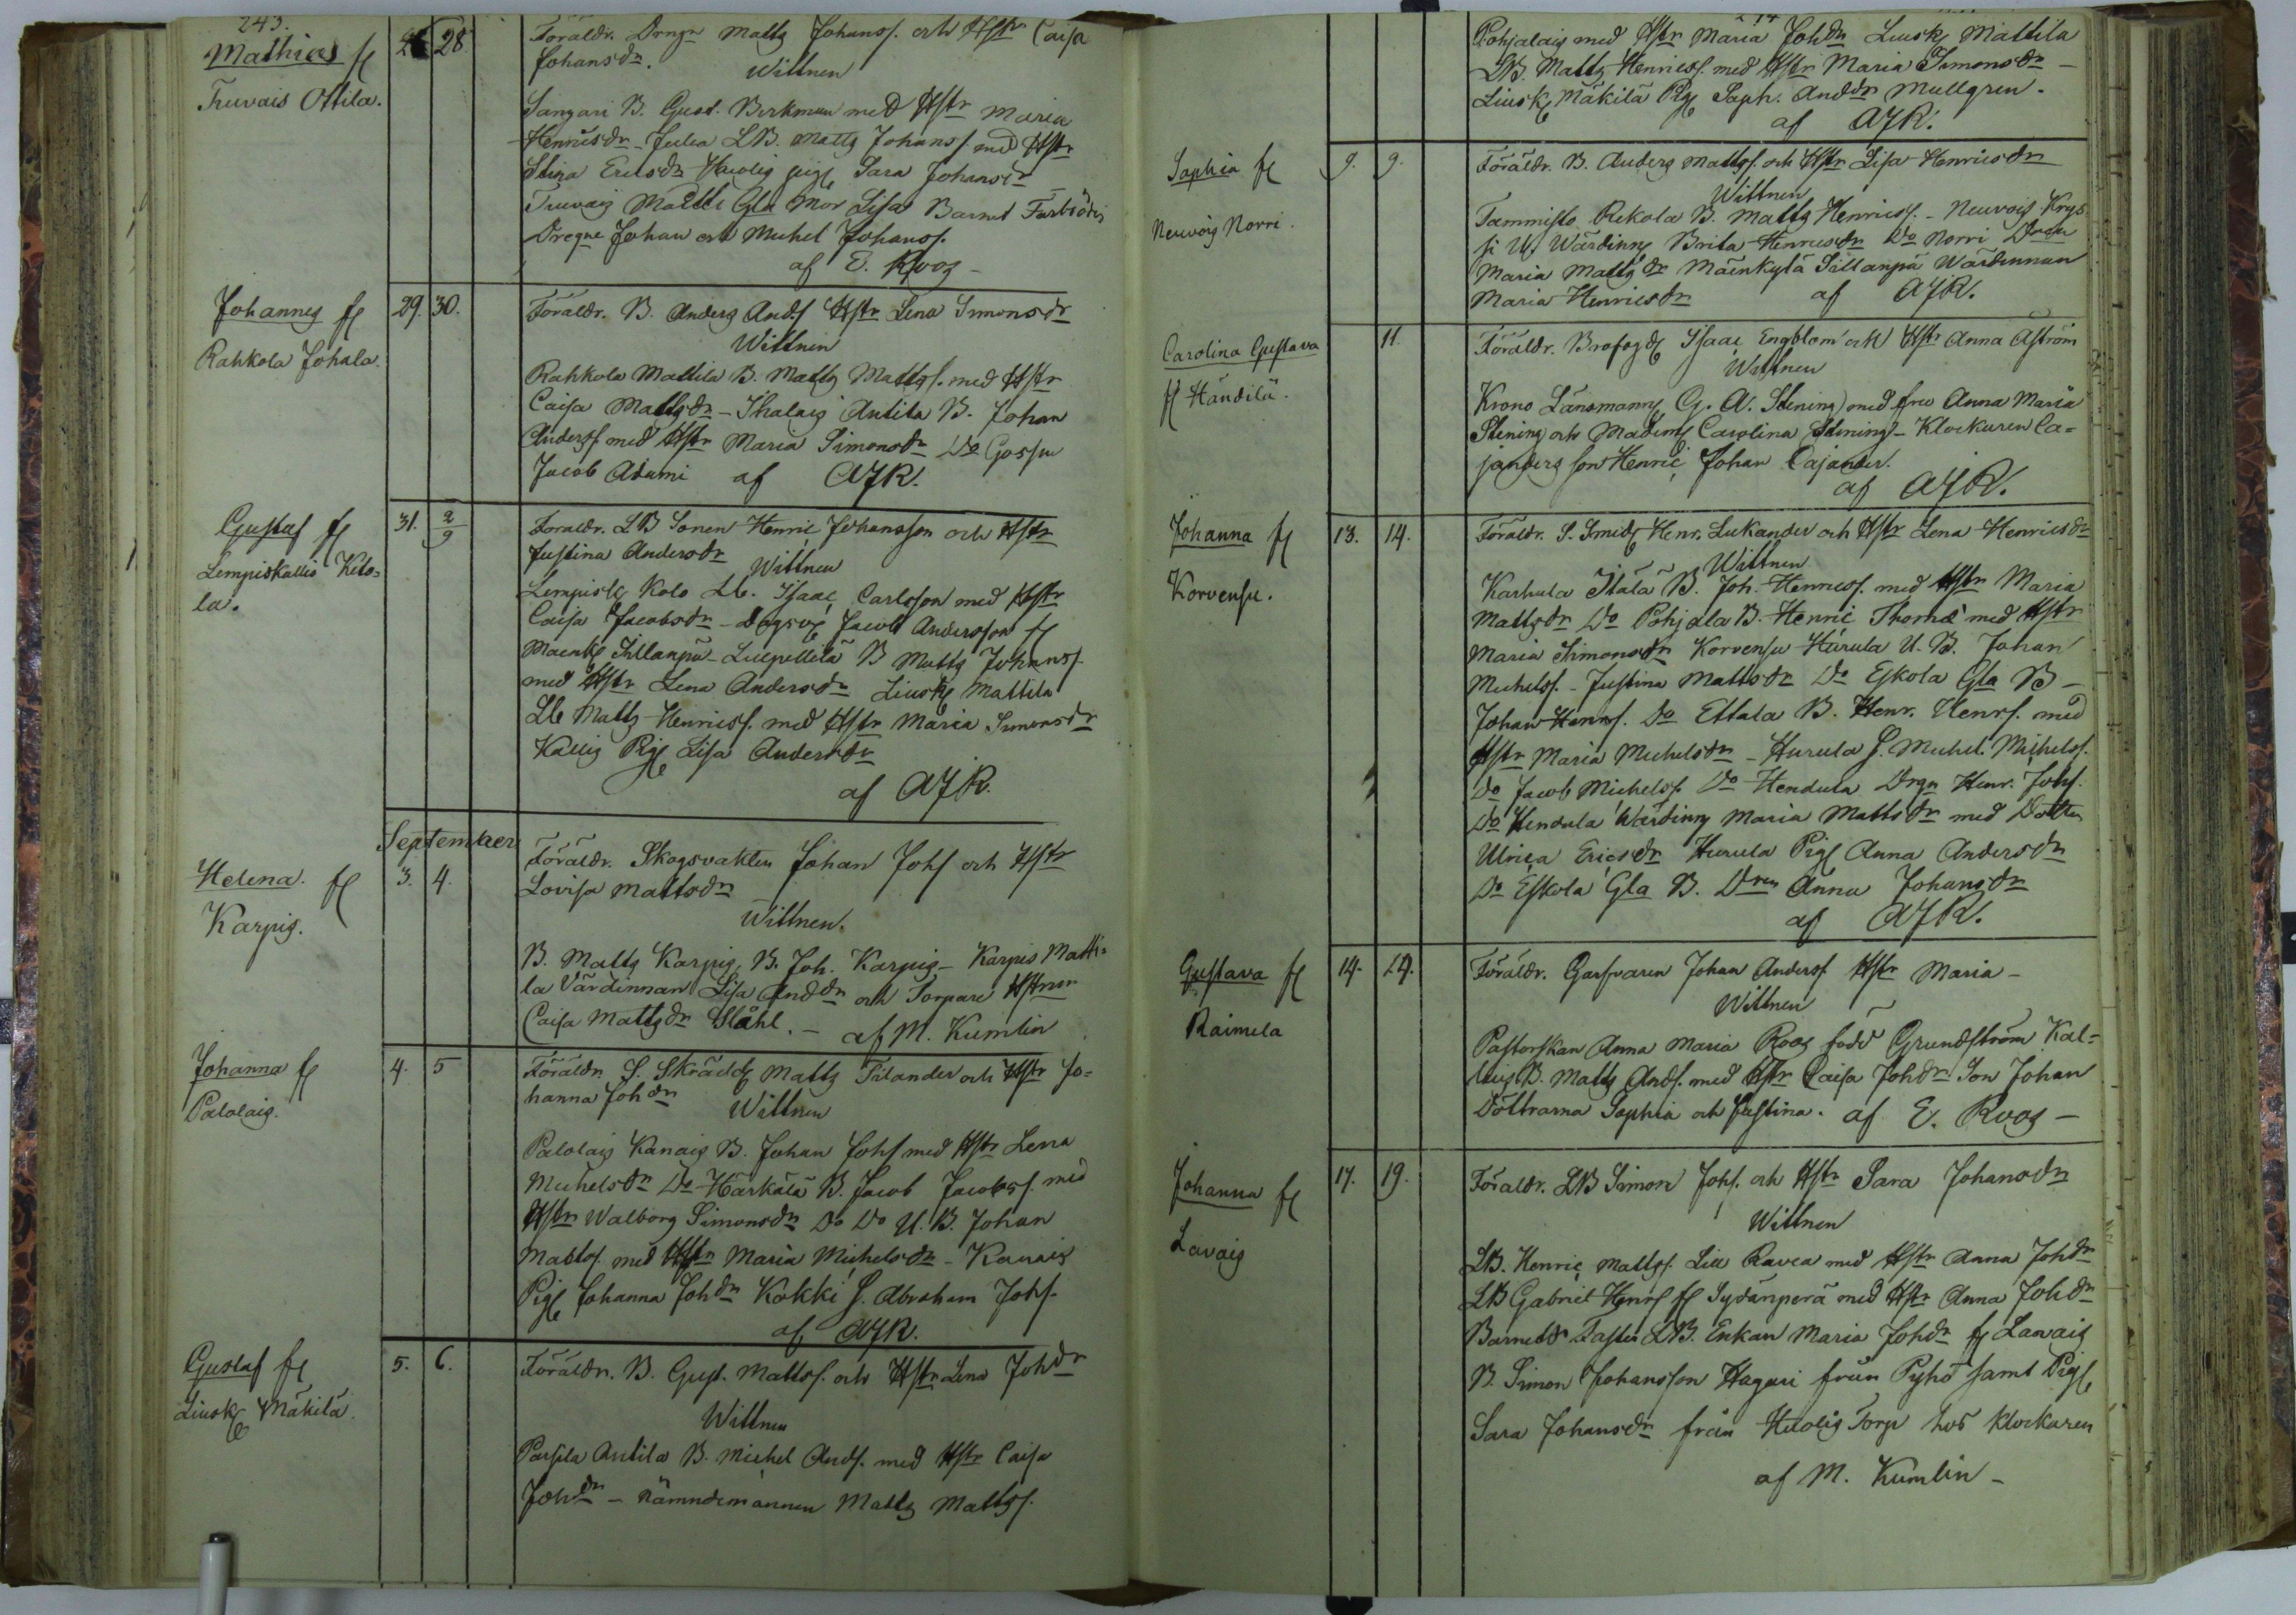 243.
Mathias fl
Truvais Ottila.
26 28
Föräldr. Drngn Matts Johanss. och Hstr Caisa
Johansdr.
Wittnen
Sangari B. Gust. Birkman med Hstr Maria
Henricsdr - Julia LB. Matts Johanss. med Hstr
Stina Ericsdr Huolis pig Sara Johansdr
Truvais Mattli Gla Mor Lisa Barnet Farbröder
Dregne Johan och Michel Johanss.
af E. Roos -
Johannes fl
Rahkola Johala
29. 30.
Föräldr. B. Anders Ands Hstr Lena Simonsdr
Wittnen
Rahkola Mattila B. Matts Mattss. med Hstr
Caisa Mattsdr - Ihalais Antila B. Johan
Anderss. med Hstr Maria Simonsdr Do Gossen
Jacob Adami af AJR.
Gustaf fl
Lempiskallio Keto=
la.
31. 2/9
Föräldr. LB Sonen Henric Johansson och Hstr
Justina Andersdr
Wittnen
Lempisk Kolo Lb. Isaac Carlsson med Hstr
Caisa Jacobsdr - Dagsv Jacob Andersson fl
Maenk Sillanpä - Luepellilä B Matts Johanss.
med Hstr Lena Andersdr Liusk Mattila
Lb Matts Henricss. med Hstr Maria Simonsdr
Kallis Pig Lisa Andersdr
af AJR.
September
Helena. fl
Karpis.
3. 4.
Föräldr. Skogsvakten Johan Johs och Hstr
Lovisa Mattsdr
Wittnen.
B. Matts Karpis, B. Joh. Karpis - Karpis Matti=
la Värdinnan Lisa Anddr och Torpare Hstrun
Caisa Mattsdr Ståhl. - af M. Kumlin
Johanna fl
Palolais.
4. 5
Föräldr. S. Skrädd Matts Tilander och Hstr Jo=
hanna Johdr
Wittnen
Palolais Kanais B. Johan Johs med Hstr Lena
Michelsdr Do Härkälä B. Jacob Jacobss. med
Hstr Walborg Simonsdr Do Do U.B. Johan
Mattss. med Hstr Maria Michelsdr - Kanais
Pig Johanna Johdr Kokki S. Abraham Johs.
af AJR.
Gustaf fl
Liusk Mäkilä.
5. 6.
Föräldr. B. Gust. Mattss. och Hstr Lena Johdr
Wittnen
Parsila Antila B. Michel Ands. med Hstr Caisa
Johdr - Nämndemannen Matts Mattss.
Pohjalais med Hstr Maria Johdr Liusk Mattila
LB. Matts Henricss. med Hstr Maria Simonsdr -
Liusk Mäkilä Pig Soph. Anddr Mullgren.
af AJR.
Sophia fl
Neuvois Norri.
9. 9.
Föräldr. B. Anders Mattss. och Hstr Lisa Henricsdr
Wittnen
Tammisto Rekola B. Matts Henricss. - Neuvois Krys
si U. Wärdinn Brita Henricsdr Do Norri Dren
Maria Mattsdr Mäenkylä Sillanpä Wärdinnan
Maria Henricsdr af AJR.
Carolina Gustava
fl Händilä.
11.
Föräldr. Brofogd Isaac Engblom och Hstr Anna Åström
Wittnen
Krono Länsmann G. A. Stening med fru Anna Maria
Stening och Madem Carolina Stening - Klockaren Ca=
janders son Henric Johan Cajander.
af AJR.
Johanna fl
Korvensu.
13. 14.
Föräldr. S. Smed Henr. Lukander och Hstr Lena Henricsdr
Wittnen
Karhula Itälä B. Joh. Henricss. med Hstr Maria
Mattsdr Do Pohjala B. Henric Thomæ med Hstr
Maria Simonsdr Korvensu Harula U.B. Johan
Michelss. - Justina Mattsdr Do Eskola Gla B -
Johan Henrs. Do Ettala B. Henr. Henrs. med
Hstr Maria Michelsdr - Hurula S. Michel Michelss.
Do Jacob Michelss. Do Hendula Drgn Henr. Johs.
Do Hendula Wärdinn Maria Mattsdr med Dotter
Ulrica Ericsdr Hurula Pig Anna Andersdr
Do Eskola Gla B. Dren Anna Johansdr
af AJR.
Gustava fl
Raimela
14. 14.
Föräldr. Garfvaren Johan Anderss. Hstr Maria -
Wittnen
Pastorskan Anna Maria Roos född Grundström Kal=
lais B. Matts Ands. med Hstr Caisa Johdr Son Johan
Döttrarna Sophia och Justina. af E. Roos -
Johanna fl
Lavais
17. 19.
Föräldr. LB Simon Johs. och Hstr Sara Johansdr
Wittnen
LB. Henric Mattss. Lill Ravea med Hstr Anna Johdr
LB Gabriel Henrs fl Sydänperä med Hstr Anna Johdr
Barnets Faster LB. Enkan Maria Johdr fl Lavais
B. Simon Johansson Hagari från Pyhö samt Pig
Sara Johansdr från Huolis Torp hos Klockaren
af M. Kumlin -